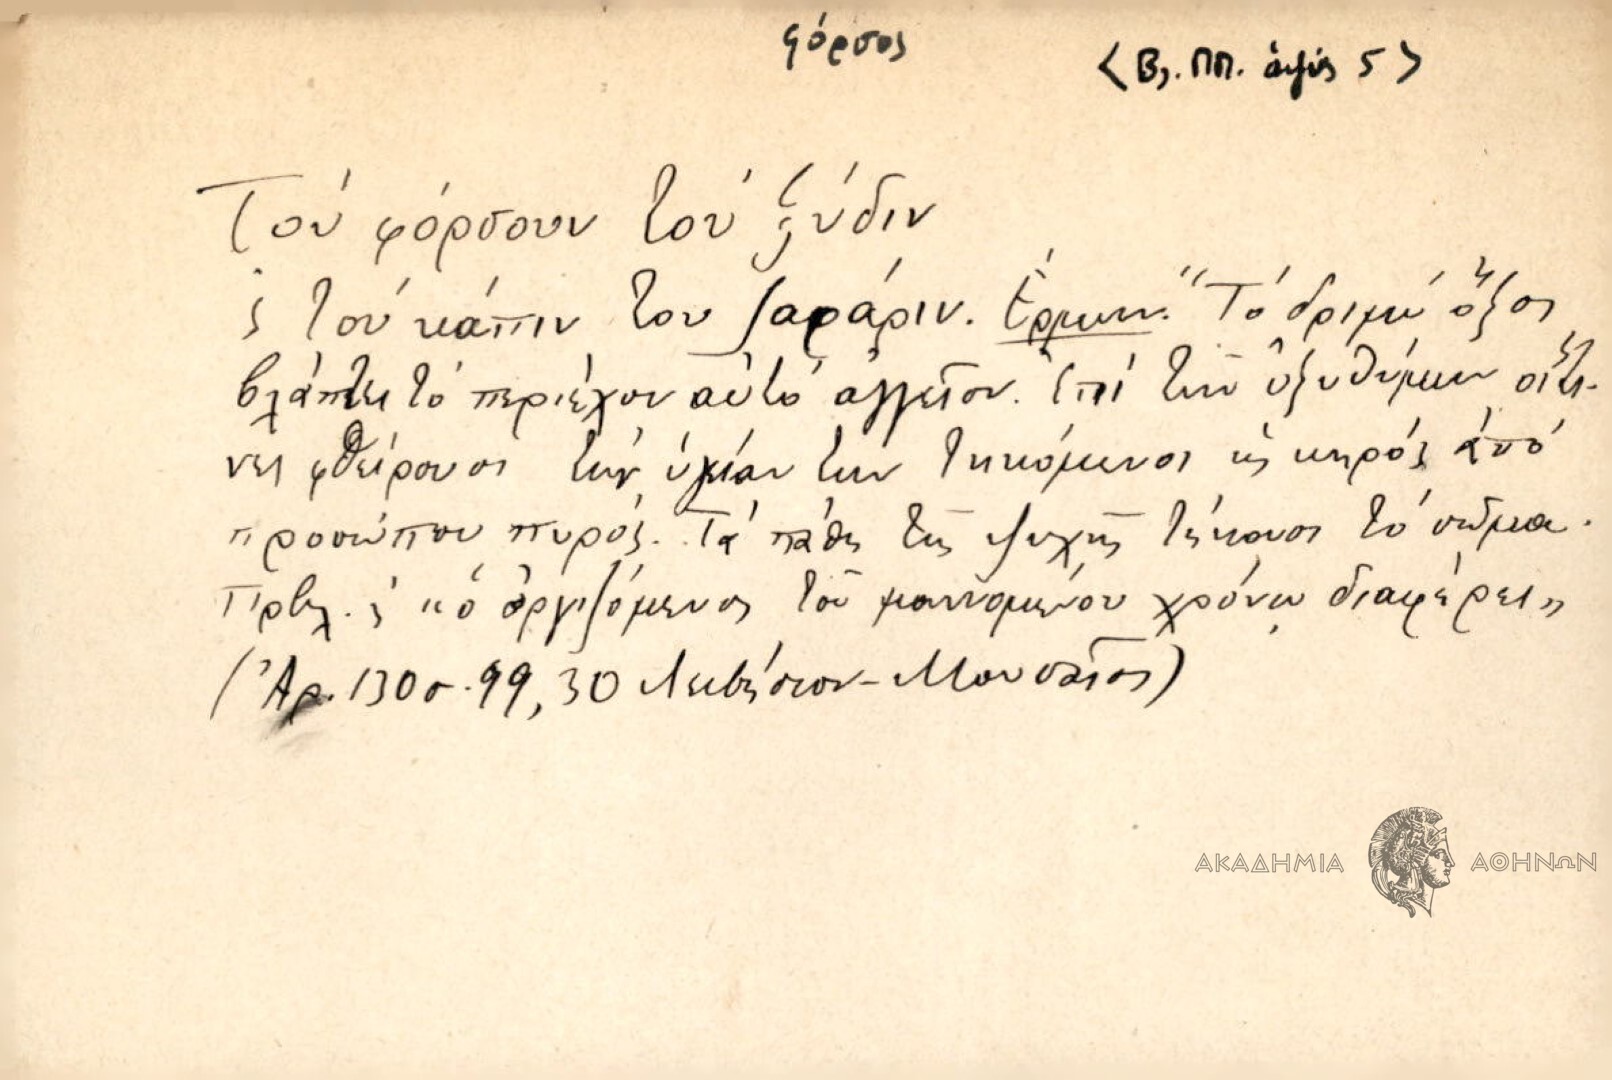 φόρσος
<Βλ. ΠΠ. 5>
Τού φόρσουν τού ξύδιν
τού κάπιν του ζαράριν. Ἑρμην. "Τό δριμύ ὄξος
βλάπτει τό περιέχον αὐτό ἀγγεῖον. Ἐπί τῶν ὀξυθύμων οἵτι-
νες φθείρουσι τήν ὑγείαν των τηκόμενοι ὡς κηρός ἀπό
προσώπου πυρός. Τά πάθη τῆς ψυχῆς τήκουσι τό σῶμα.
Πρβλ. κ ὁ ὀργιζόμενος τοῦ μαινομένου χρόνῳ διαφέρει"
(Ἀρ. 130 σ. 99, 30 Λεβήσιον - Μουσαῖος)
ΑΚΑΔΗΜΙΑ ΑΘΗΝΩΝ